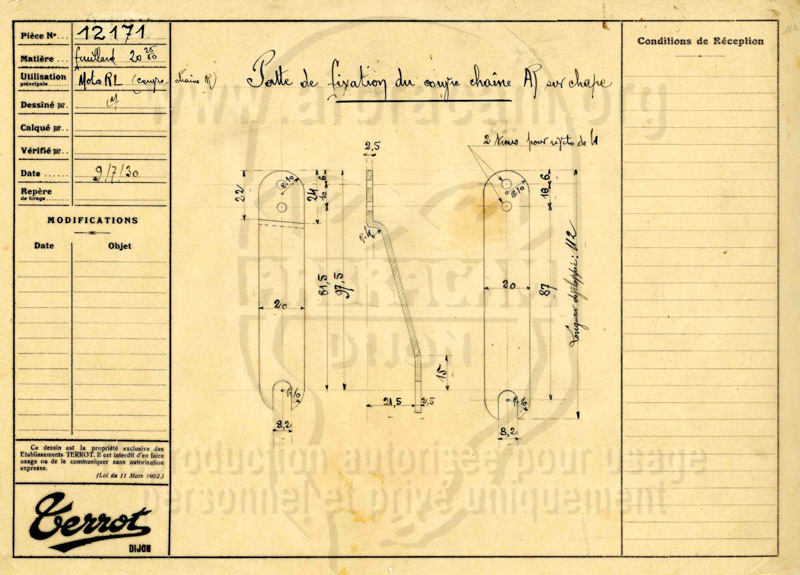 Pièce No... 12171
Matière... feuillard 20
Utilisation principale... Moto RL (couvre-chaîne AR)
Dessiné par..
Calqué par..
Vérifié par..
Date ...... 9/7/30
Repère de tirage.
MODIFICATIONS
Date Objet
Ce dessin est la propriété exclusive des
Etablissements TERROT. Il est interdit d'en faire
usage ou de le communiquer sans autorisation
expresse.
(Loi du 11 Mars 1902.)
Terrot
DIJON
Patte de fixation du couvre chaîne AR sur chape
2 trous pour rivets de 4
2,5
22
24
10
6
R:10
R:4
20
81,5
97,5
15
21,5
2,5
R:10
8,2
10
6
R:10
20
87
Longueur développée: 112
R:10
8,2
Conditions de Réception
112
www.arbracam.org
ARBRACAM
DIJON
Reproduction autorisée pour usage
personnel et privé uniquement